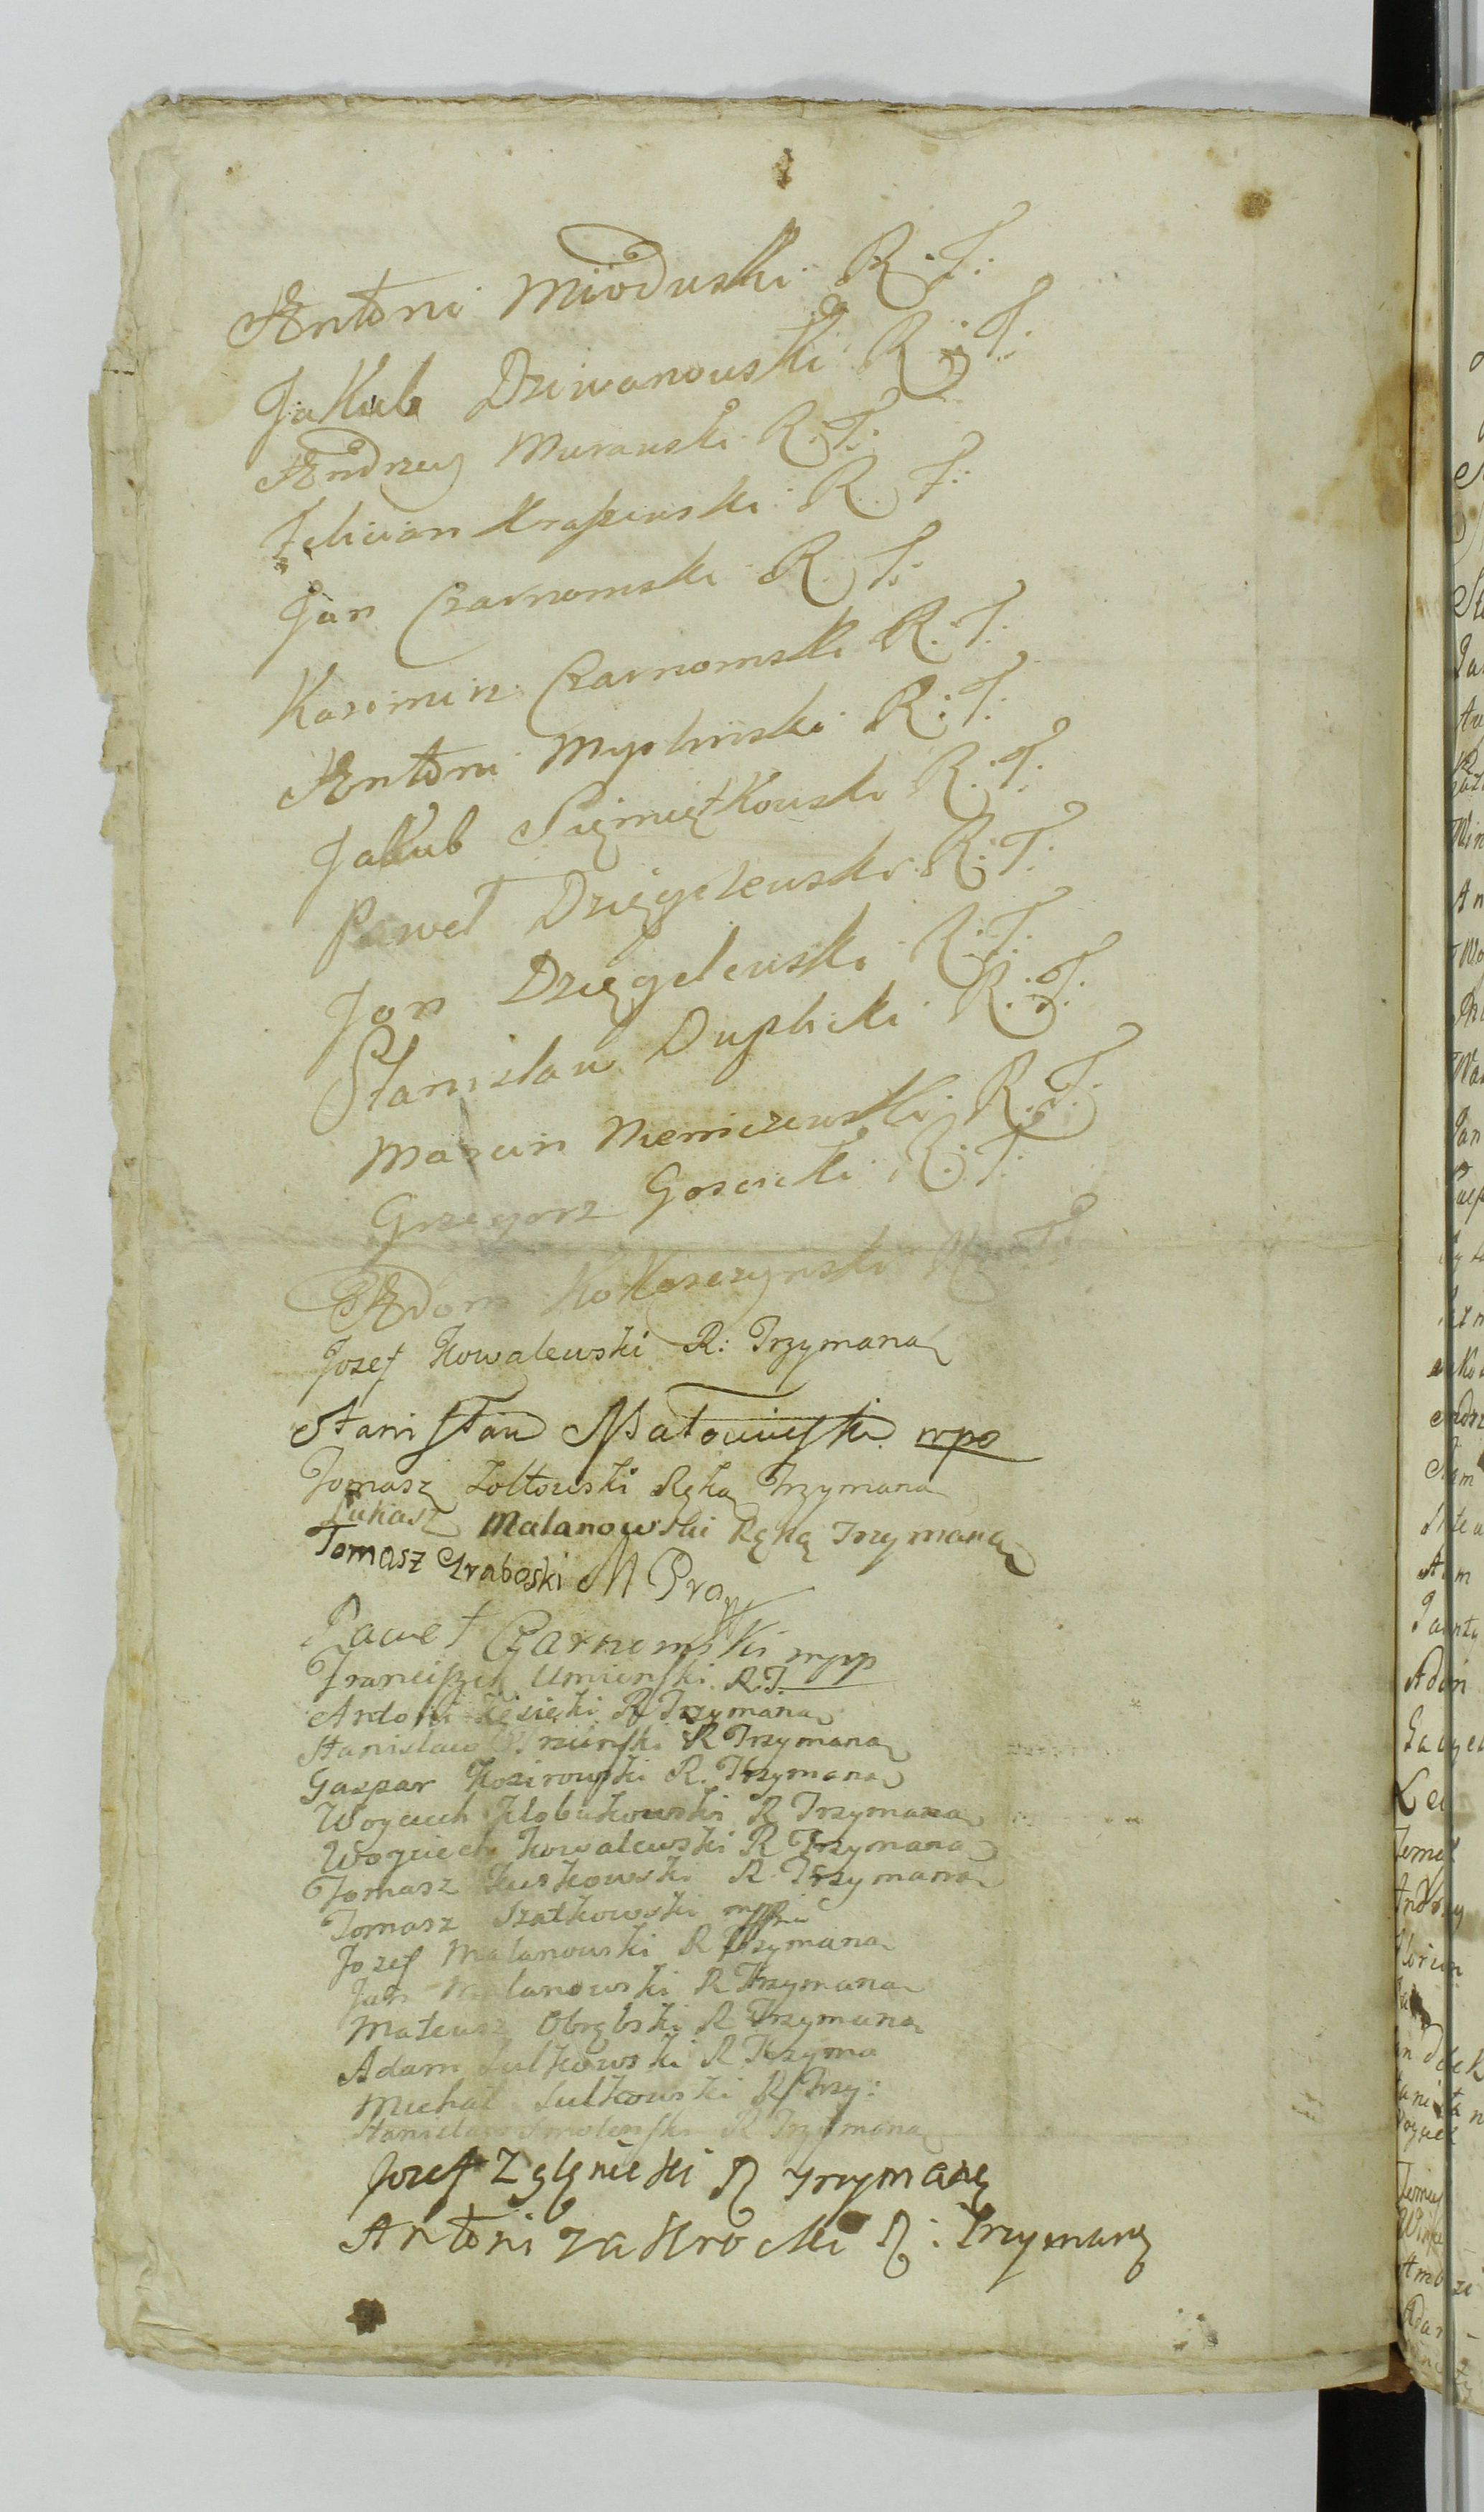 Antoni Mioduski R: T:
Jakub Dziwanowski R: T:
Andrzey Murawski R: T:
Felician Kraszewski R: T:
Jan Czarnomski R: T:
Kazimirz Czarnomski R: T:
Antoni Myslinski R: T:
Jakub Siemiątkowski R: T:
Paweł Dzięgelewski R: T:
Jan Dzięgelewski R: T:
Stanislaw Duplicki R: T:
Marcin Niemczewski R: T:
Grzegorz Goscicki R: T:
Adam Kokoszczynski
Jozef Kowalewski R: Trzymaną
Stanisław mpo
Tomasz Zołtowski Ręką Trzymaną
Łukasz Malanowski Ręką Trzymaną
Tomasz Graboski M Pro
Paweł Czarnomski mpp
Franciszek Umienski R.T.
Antoni R Trzymaną
Stanislaw R Trzymaną
Gaspar Kozirowski R. Trzymaną
Woyciech Kłobukowski R Trzymaną
Woyciech Kowalewski R Trzymaną
Tomasz R Trzymaną
Tomasz Szatkowski
Jozef Malanowski R Trzymaną
Jan Malanowski R Trzymaną
Mateusz Obrębski R Trzymaną
Adam Sulkowski R Trzyma
Michał Sulkowski R Trzy:
Stanislaw Smolenski R Trzymaną
Jozef Zglenicki R Trzymaną
Antoni Zakrocki R: Trzymaną